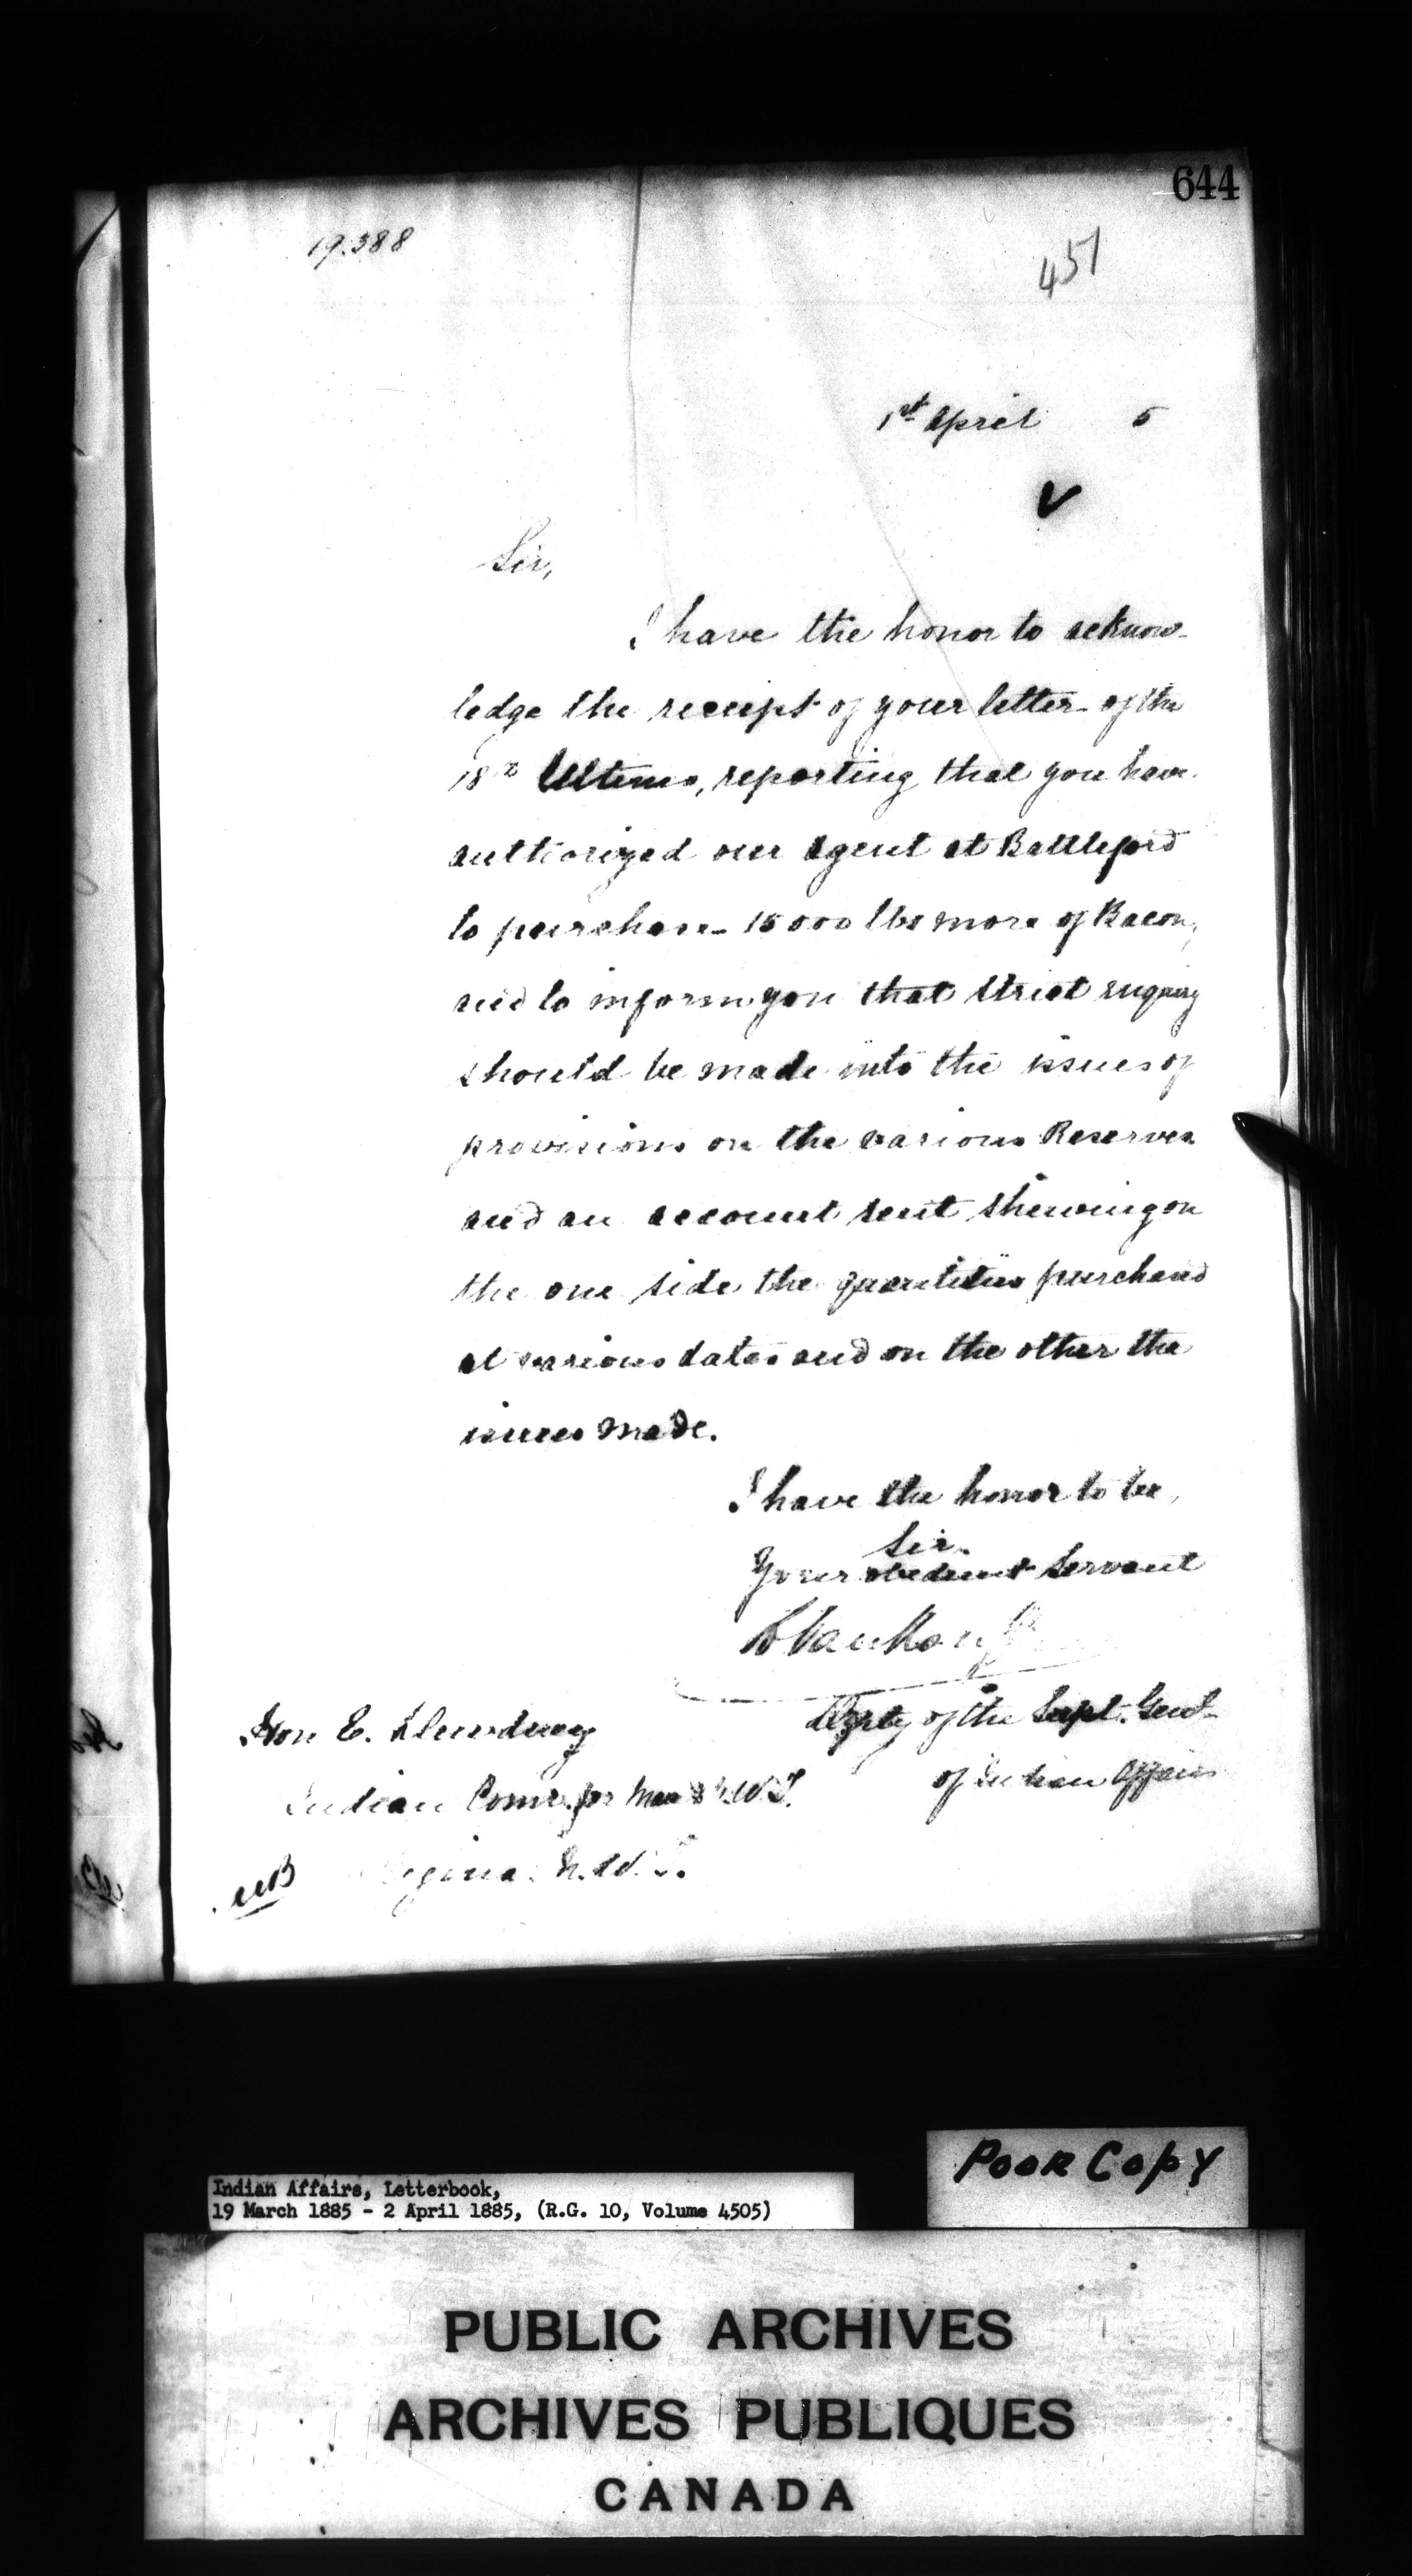 644
19.388
451
1st April 5
Sir,
I have the honor to acknow-
ledge the receipt of your letter of the
18th Ultimo, reporting that you have
authorized our Agent at Battleford
to purchase 15000 lbs more of Bacon,
and to inform you that strict enquiry
should be made into the issues of
provisions on the various Reserves
and an account sent shewing on
the one side the quantities purchased
at various dates and on the other the
issues made.
I have the honor to be,
Sir,
Your obedient Servant
L Vankoughnet
Deputy of the Supt. Genl
of Indian Affairs
Hon E. Dewdney
Indian Comr. for Man & N.W.T.
Regina. N.W.T.
Indian Affairs, Letterbook,
19 March 1885 - 2 April 1885, (R.G. 10, Volume 4505)
POOR COPY
PUBLIC ARCHIVES
ARCHIVES PUBLIQUES
CANADA